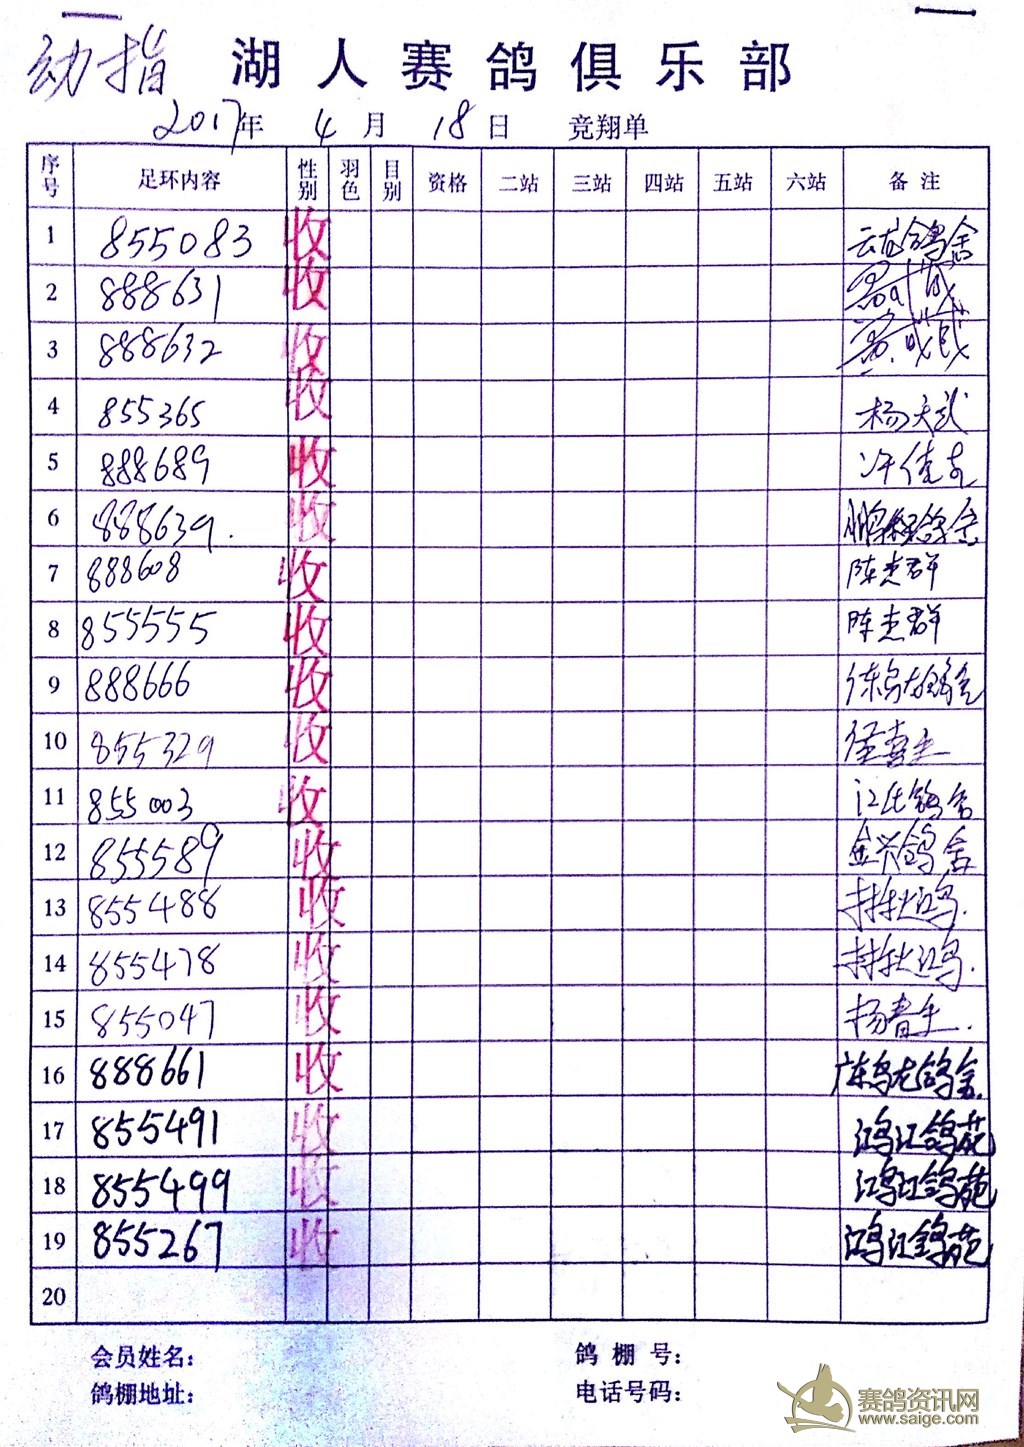 幼指 湖人赛鸽俱乐部
2017年 4月 18日 竞翔单
序号 足环内容 性别 羽色 目别 资格 二站 三站 四站 五站 六站 备注
1 855083 收 云龙鸽舍
2 888631 收
3 888632 收
4 855365 收 杨天武
5 888689 收 许佳
6 888639. 收 鸽舍
7 888608 收 陈志群
8 855555 收 陈志群
9 888666 收 鸽舍
10 855329 收
11 855003 收 江氏鸽舍
12 855589 收 金兴鸽舍
13 855488 收
14 855478 收
15 855047 收 杨春生.
16 888661 收 广东乌龙鸽舍.
17 855491 收 鸿江鸽苑
18 855499 收 鸿江鸽苑
19 855267 收 鸿江鸽苑
20
会员姓名： 鸽棚号：
鸽棚地址： 电话号码：
赛鸽资讯网
www.saige.com